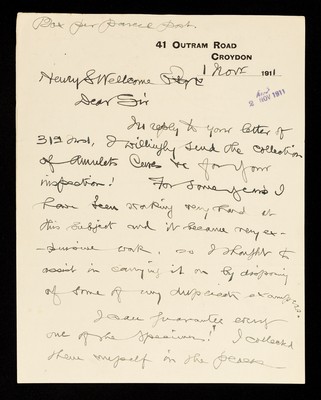 Box per Parcel Post.
41 OUTRAM ROAD
CROYDON
1 Nov 1911
Henry S Wellcome Esqre
2 NOV 1911
Dear Sir
In reply to your letter of
31st Oct, I willingly send the collection
of Amulets Cures &c for your
inspection! For some years I
have been working very hard at
this subject and it became very ex-
-pensive work, so I thought to
assist in carrying it on by disposing
of some of my duplicate examples.
I can guarantee every
one of the specimens! I collected
them myself in the places